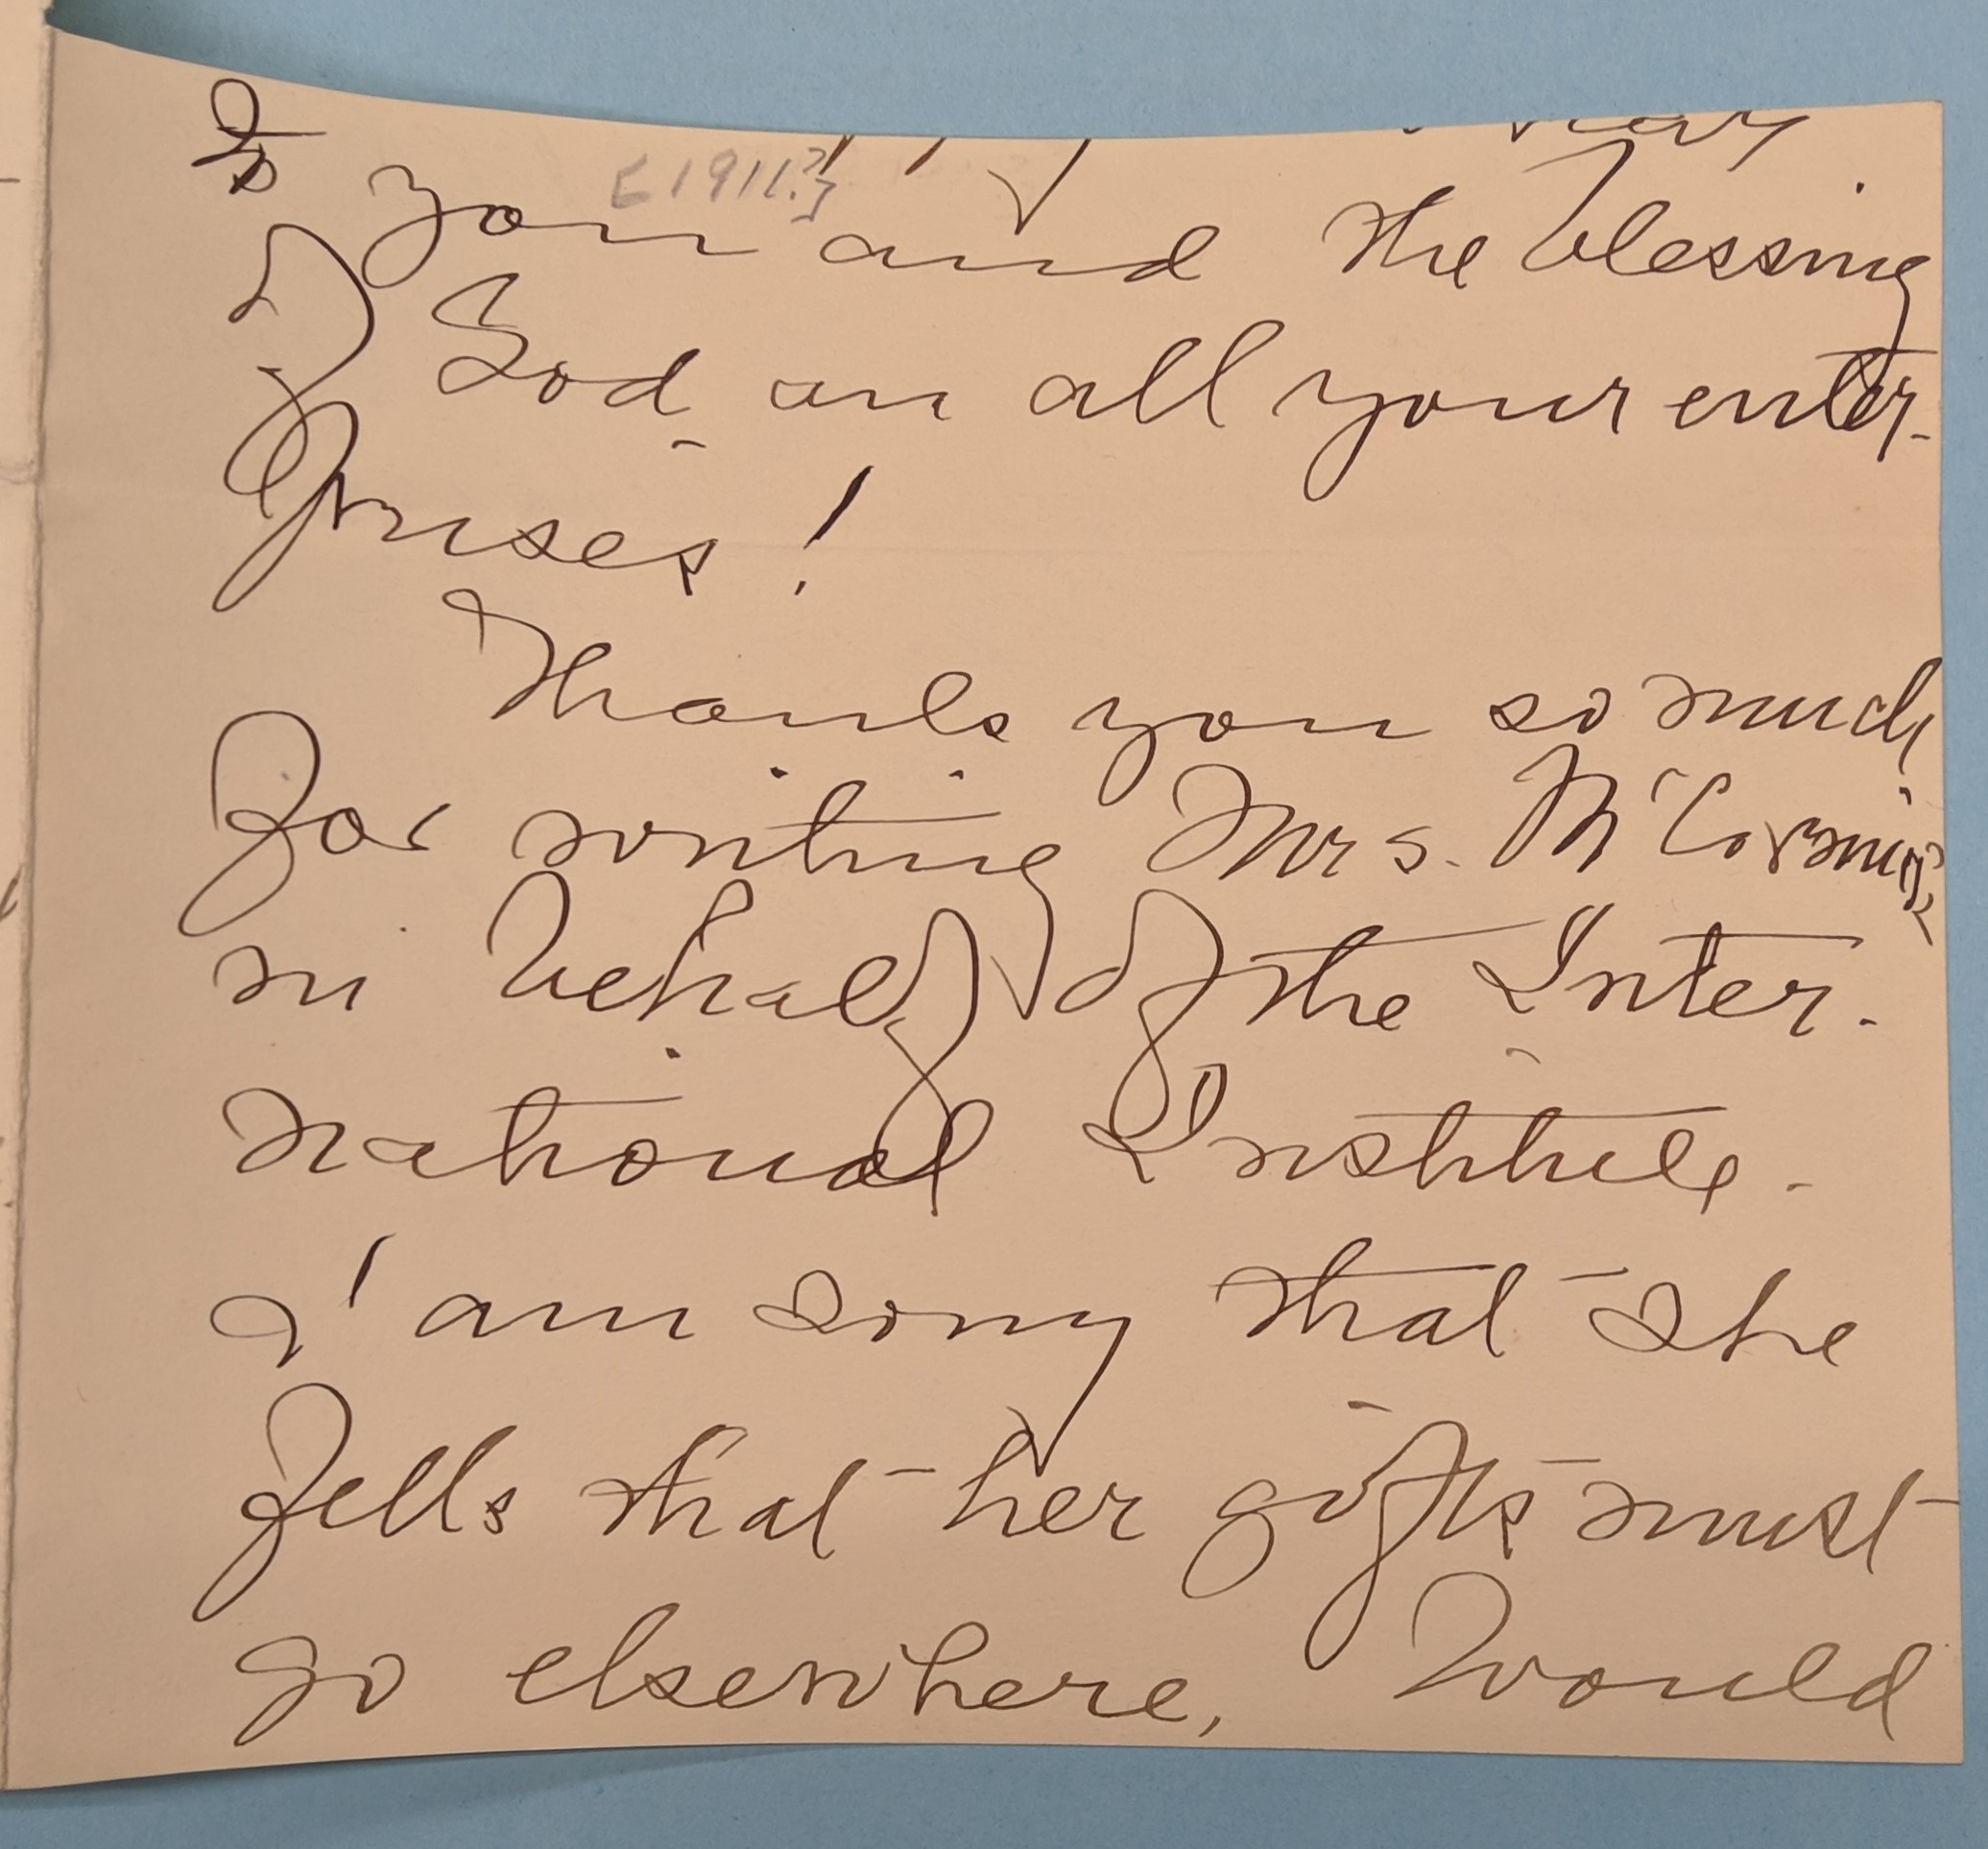 to you and the blessing
[1911?]
of God on all your enter-
prises!
Thank you so much
for writing Mrs. McCormick
in behalf of the Inter-
national Institute.
I am sorry that she
fells that her gifts must
go elsewhere. Would